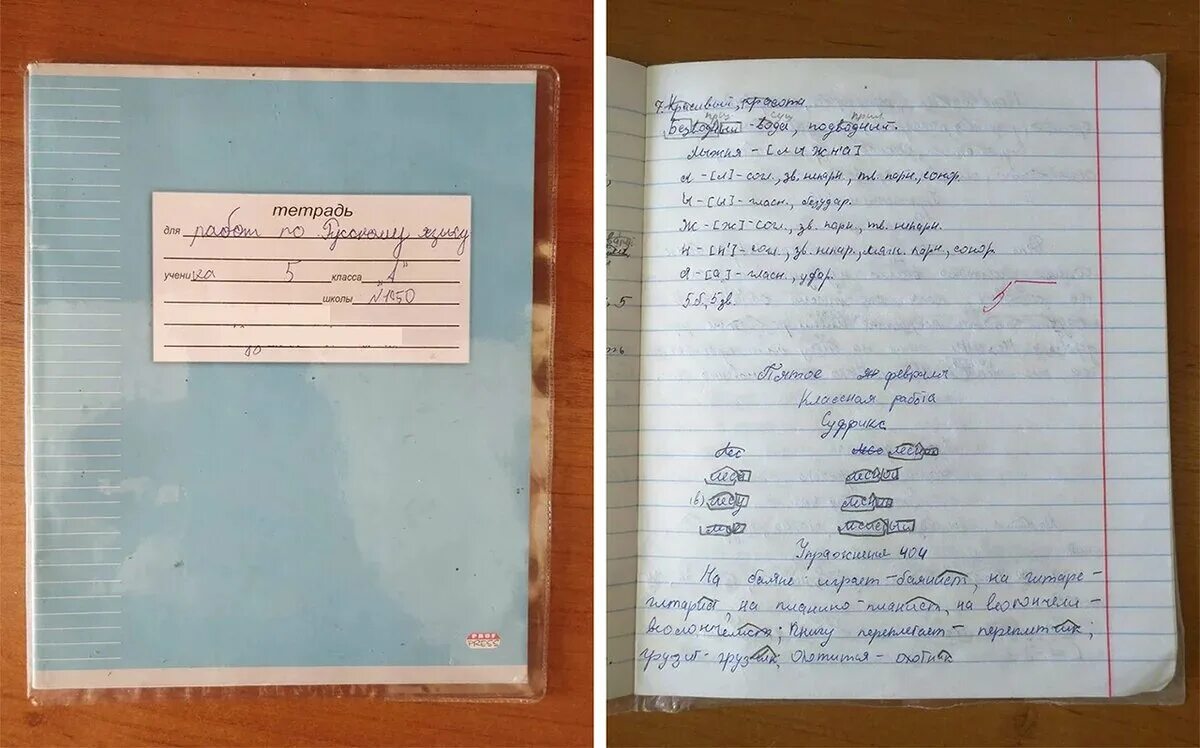 тетрадь
для работ по Русскому языку
ученика 5 класса „А"
школы №1050
PROF
PRESS
7. Красивый, красота
прил сущ прил
Безводный - вода, подводный.
Лыжня - [лыжн'а]
Л - [л] - согл., зв. непарн., тв. парн., сонор.
Ы - [ы] - гласн., безудар.
Ж - [ж] - согл., зв. парн., тв. непарн.
Н - [н'] - согл., зв. непар., мягк. парн., сонор.
Я - [а] - гласн., удар.
5б, 5 зв.
5
Пятое февраля
Классная работа
Суффикс
лес лесной
леса лесной
(в) лесу
Упражнение 404
На баяне играет - баянист, на гитаре -
гитарист, на пианино - пианист, на веолончели -
веолончелист; Книгу переплетает - переплетчик;
грузит - грузчик; Охотится - охотник